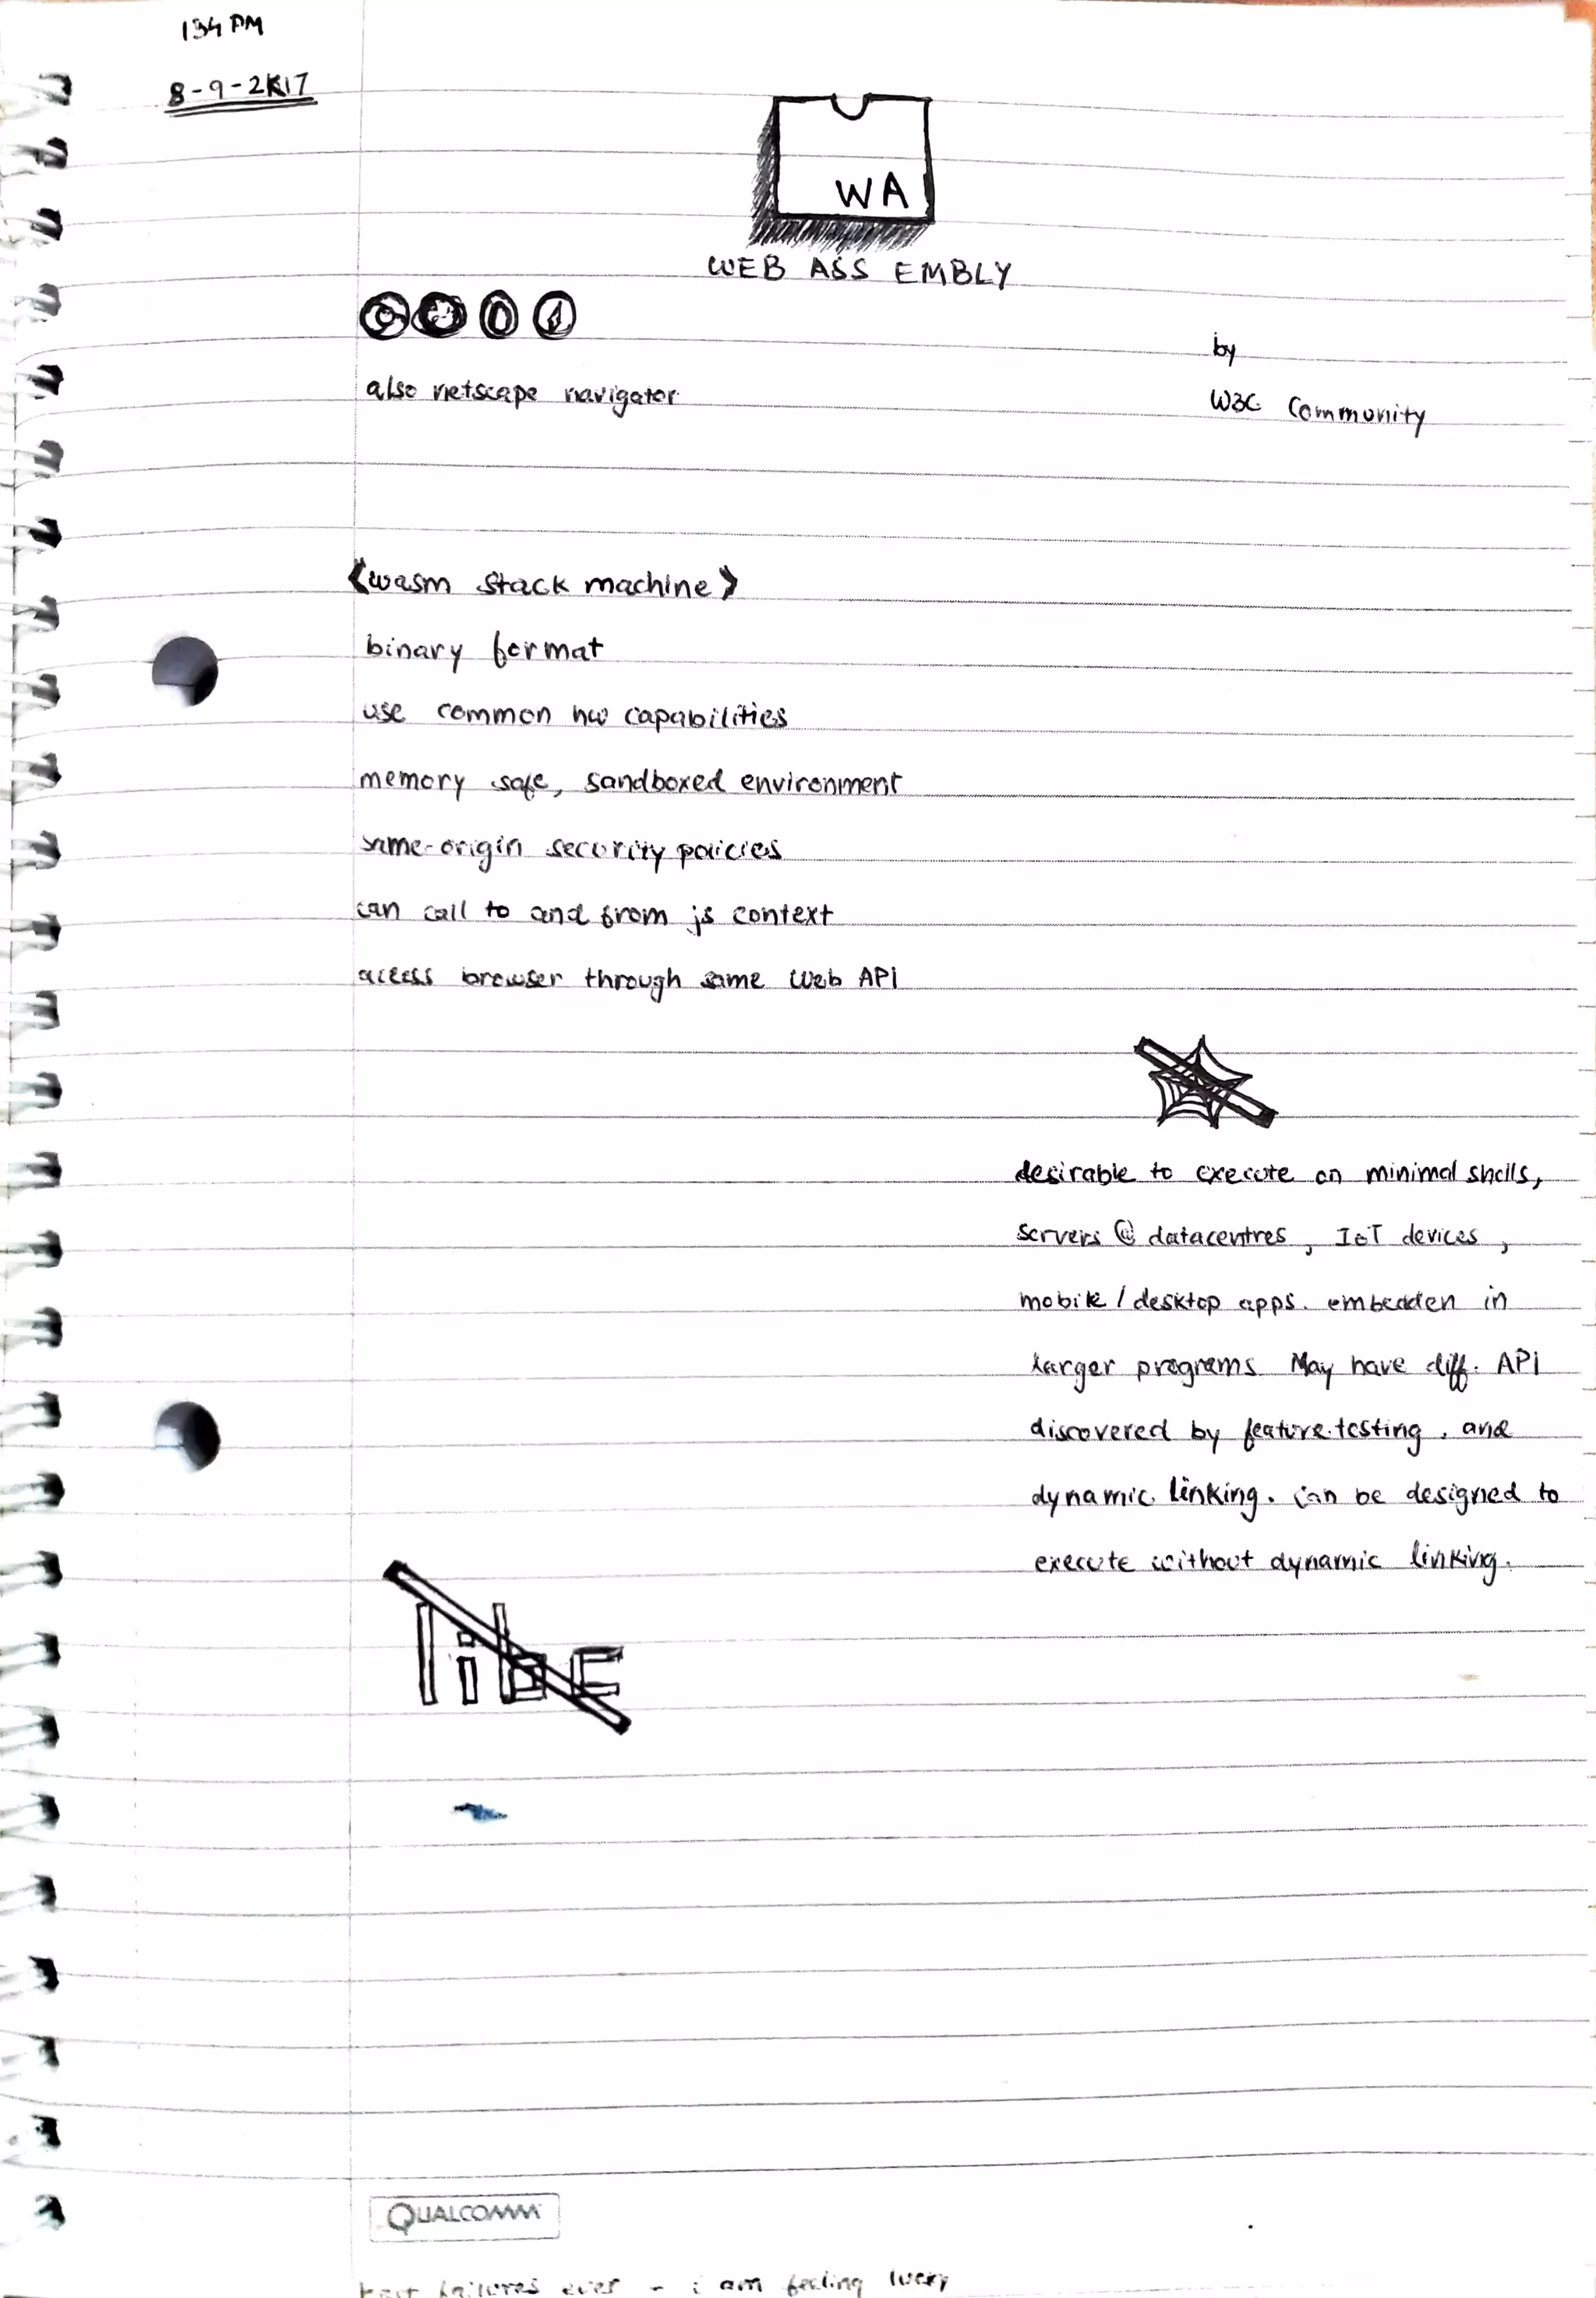 134 PM
8-9-2K17
WA
WEB ASSEMBLY
also netscape navigator
by
W3C Community
<wasm stack machine>
binary format
use common hw capabilities
memory safe, sandboxed environment
same-origin security policies
can call to and from js context
access browser through same Web API
desirable to execute on minimal shells,
servers @ datacentres, IoT devices,
mobile / desktop apps. embedden in
larger programs May have diff. API
discovered by feature testing, and
dynamic linking. Can be designed to
execute without dynamic linking.
libc
QUALCOMM
failures ever - i am feeling lucky